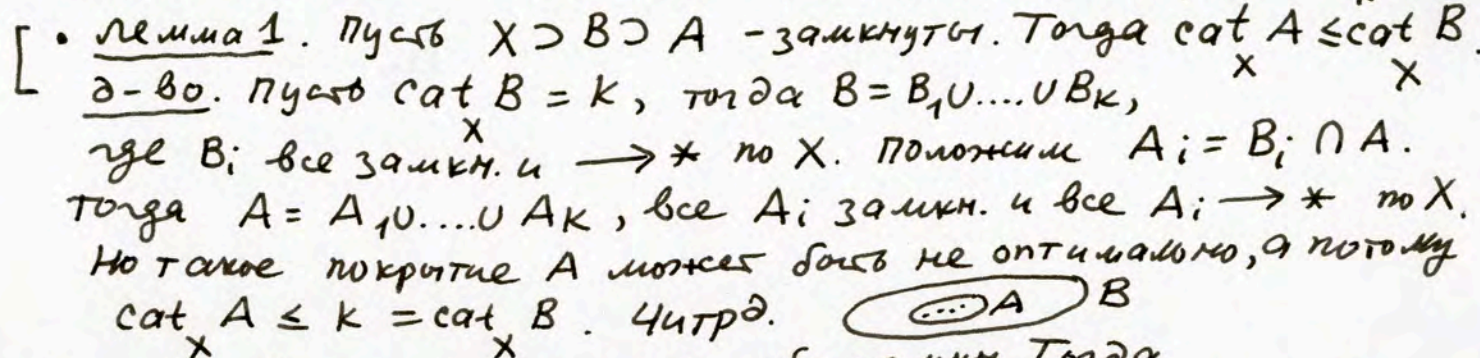 [ • Лемма 1. Пусть X ⊃ B ⊃ A - замкнуты. Тогда cat_X A ≤ cat_X B.
д-во. Пусть cat_X B = k, тогда B = B₁∪....∪B_k,
где B_i все замкн. и ⟶ * по X. Положим A_i = B_i ∩ A.
Тогда A = A₁∪....∪A_k, все A_i замкн. и все A_i ⟶ * по X.
Но такое покрытие A может быть не оптимально, а потому
cat_X A ≤ k = cat_X B. Читрд. A B
замкн. Тогда